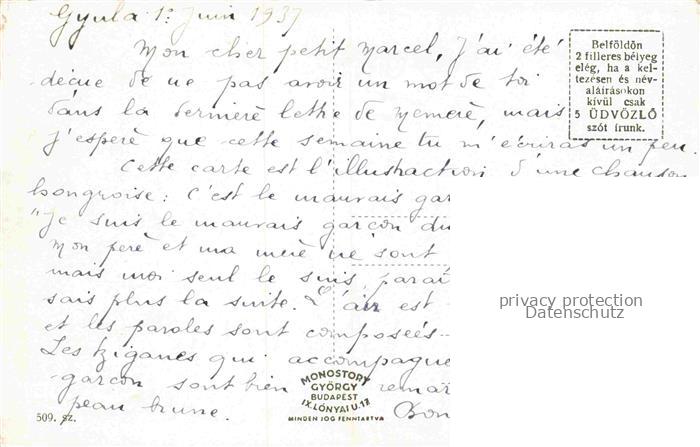 Gyula 1º Juin 1937
Mon cher petit Marcel, J'ai été
déçue de ne pas avoir un mot de toi
dans la dernière lettre de Mémére, mais
j'espère que cette semaine tu m'écriras un peu.
Cette carte est l'illustraction d'une chanson
hongroise: C'est le mauvais gar
"Je suis le mauvais garçon du
Mon père et ma mère ne sont
mais moi seul le suis, paraî
sais plus la suite. L'air est
et les paroles sont composées
Les tziganes qui accompagne
garçon sont bien remar
peau brune. Bon
Belföldön
2 filléres bélyeg
elég, ha a kel-
tezésen és név-
aláírásokon
kívül csak
5 ÜDVÖZLŐ
szót írunk.
privacy protection
Datenschutz
MONOSTORY
GYÖRGY
BUDAPEST
IX. LÓNYAI U. 17
MINDEN JOG FENNTARTVA
509. sz.